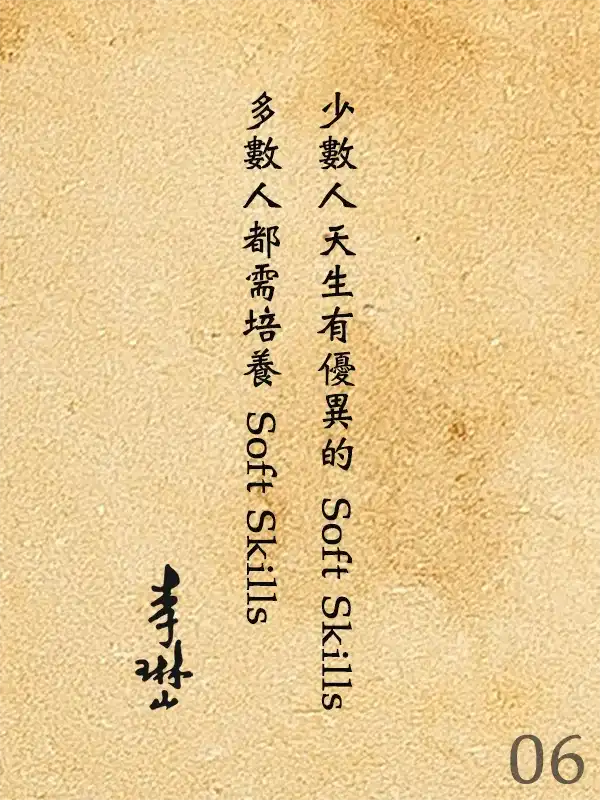 少數人天生有優異的 Soft Skills
多數人都需培養 Soft Skills
李琳山
06